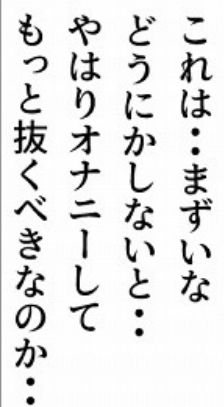 これは・・まずいな
どうにかしないと・・
やはりオナニーして
もっと抜くべきなのか・・